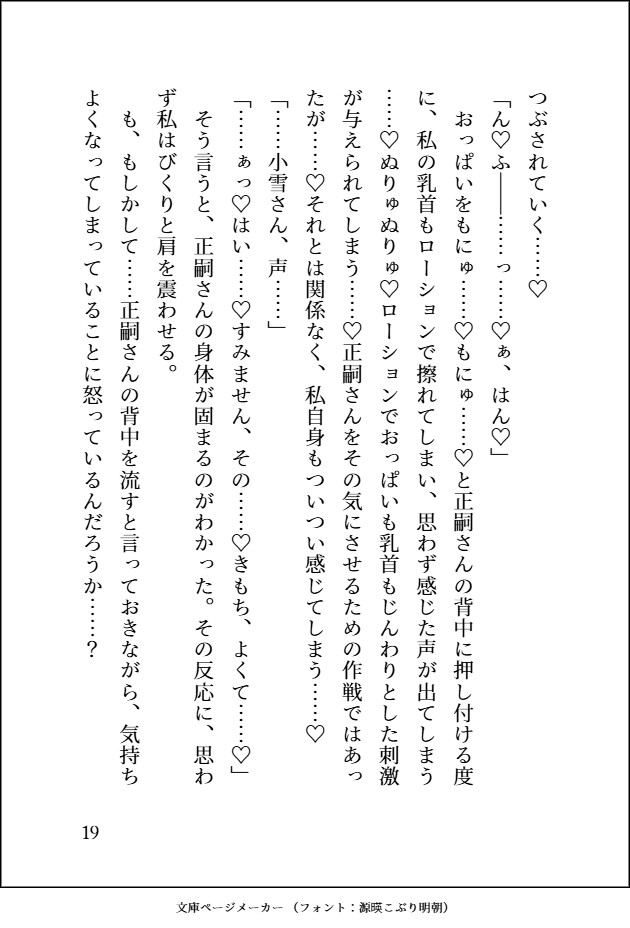 つぶされていく……♡
「ん♡ふ――……っ……♡ぁ、はん♡」
　おっぱいをもにゅ……♡もにゅ……♡と正嗣さんの背中に押し付ける度
に、私の乳首もローションで擦れてしまい、思わず感じた声が出てしまう
……♡ぬりゅぬりゅ♡ローションでおっぱいも乳首もじんわりとした刺激
が与えられてしまう……♡正嗣さんをその気にさせるための作戦ではあっ
たが……♡それとは関係なく、私自身もついつい感じてしまう……♡
「……小雪さん、声……」
「……ぁっ♡はい……♡すみません、その……♡きもち、よくて……♡」
　そう言うと、正嗣さんの身体が固まるのがわかった。その反応に、思わ
ず私はびくりと肩を震わせる。
　も、もしかして……正嗣さんの背中を流すと言っておきながら、気持ち
よくなってしまっていることに怒っているんだろうか……？
19
文庫ページメーカー（フォント：源暎こぶり明朝）